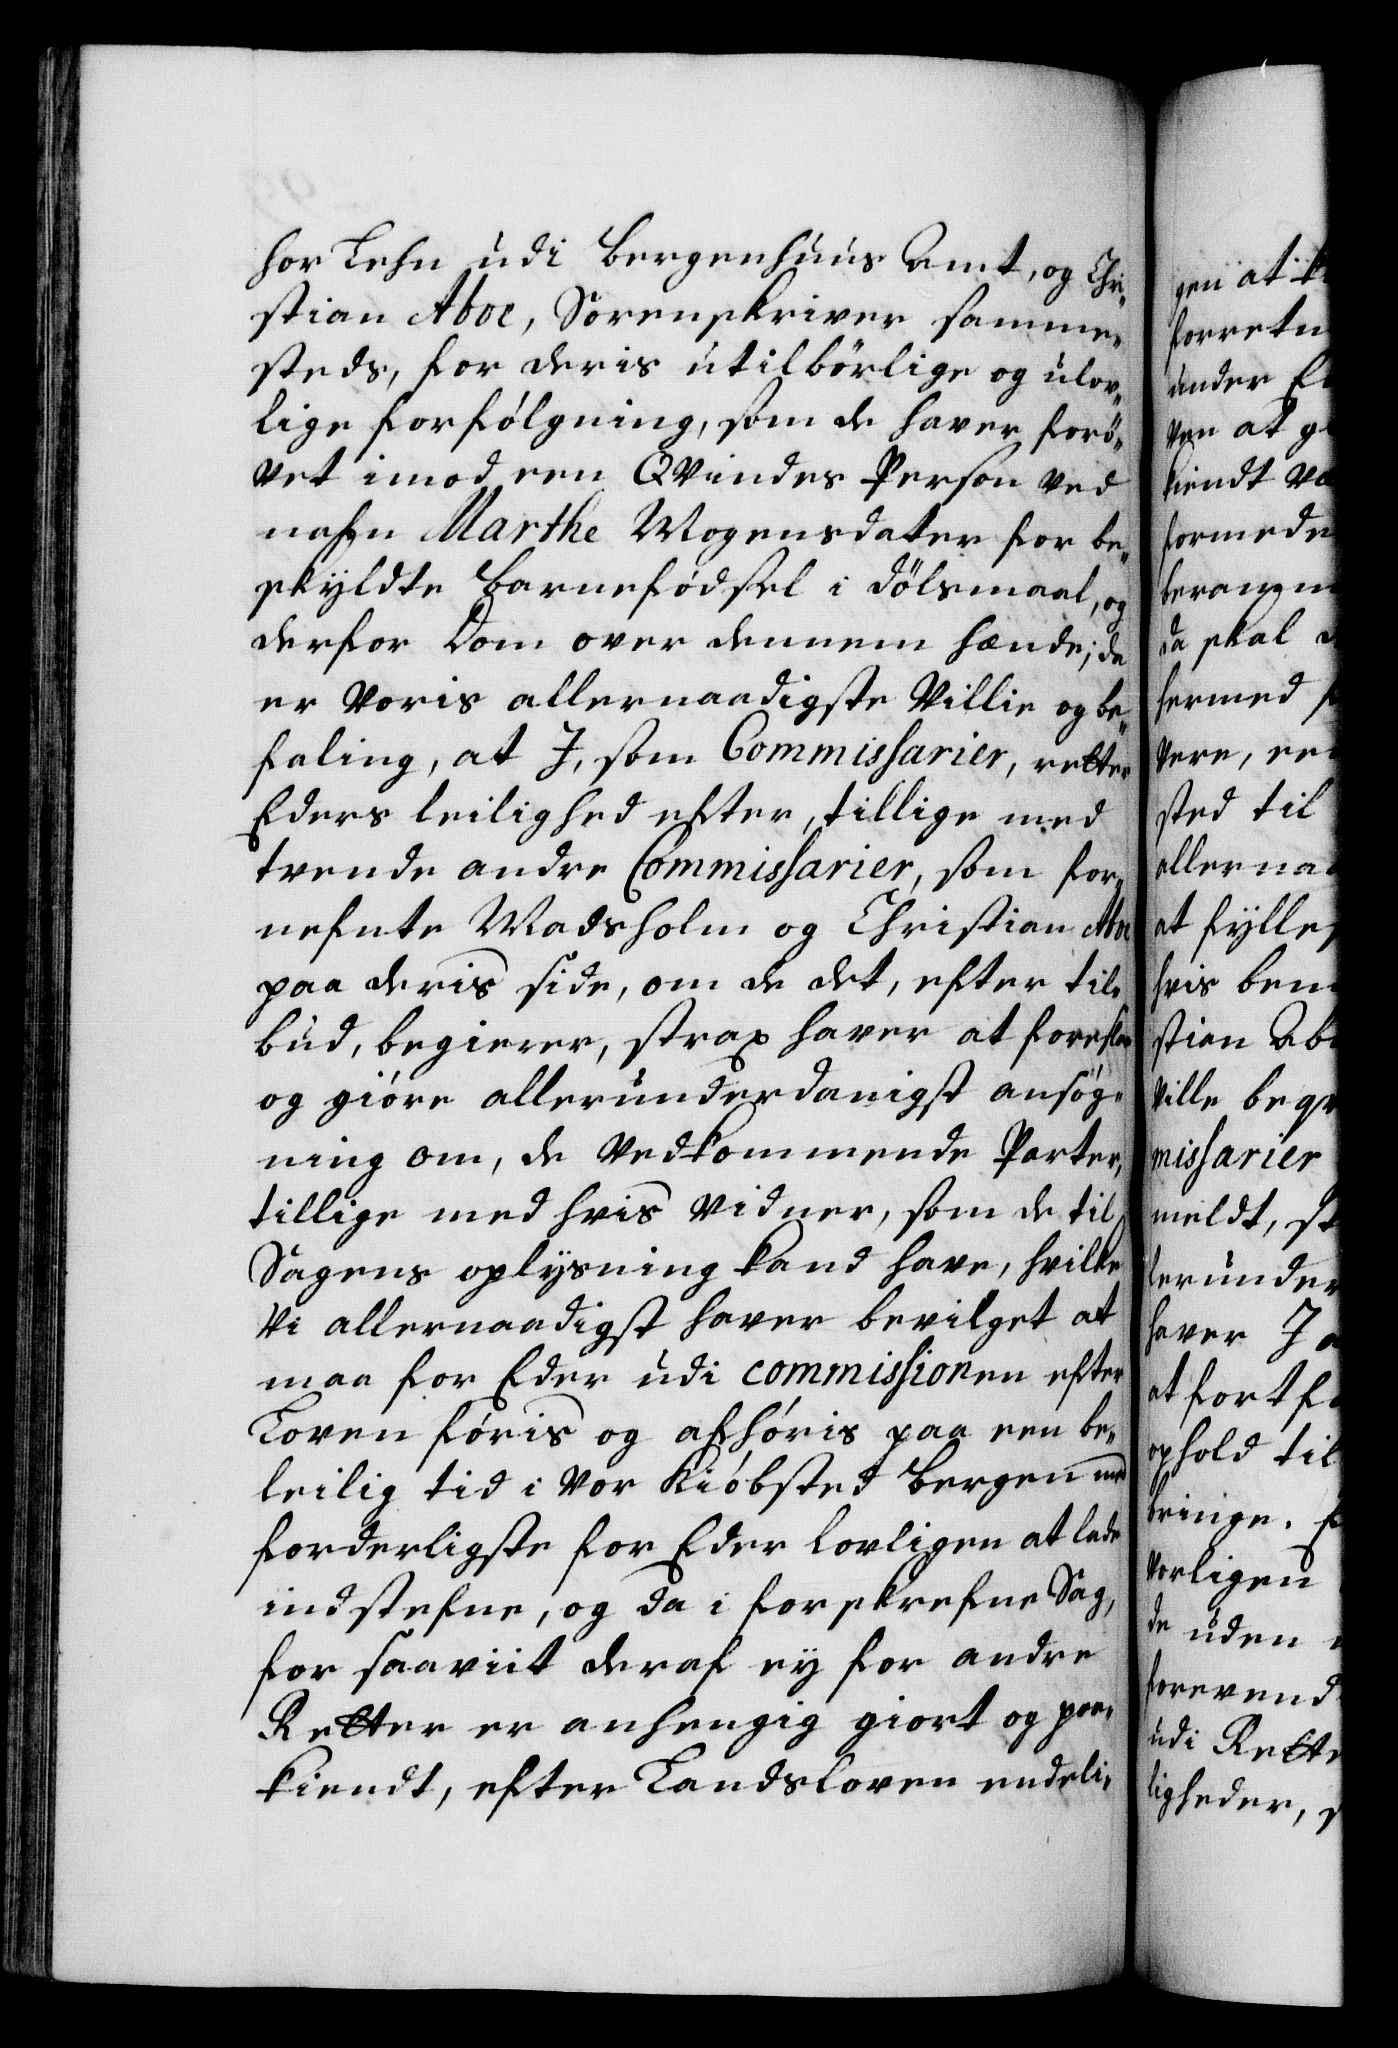 hor Lehn udi Bergenhuus Amt, og Chri-
stian Aboe, Sorenskriver samme-
steds, for deris utilbörlige og ulov-
lige forfölgning, som de haver forö-
vet imod een Qvindes Person ved
nafn Marthe Mogensdater for be-
skyldte Barnefödsel i dölsmaal, og
derfor Dom over dennem hænde; da
er Voris allernaadigste Villie og be-
faling, at I, som Commissarier, retter
Eders leilighed efter, tillige med
tvende andre Commissarier, som for-
nefnte Madsholm og Christian Aboe
paa deris side, om de det, efter til-
bud, begierer, strax haver at foreslaa
og giöre allerunderdanigst ansög-
ning om, de Vedkommende Parter,
tillige med hvis Vidner, som de til
Sagens oplysning kand have, hvilke
Vi allernaadigst haver bevilget at
maa for Eder udi commissionen efter
Loven föris og afhöris paa een be-
leilig tid i Vor Kiöbsted Bergen med
forderligste for Eder lovligen at lade
indstefne, og da i forskrefne Sag,
for saaviit deraf ey for andre
Retter er anhengig giort og paa-
kiendt, efter Landsloven endeli-
gen at
forretn
under
ven at
kiendt
formede
da skal
hermed
vere,
sted til
allerna
at fylle
hvis
stian Abo
ville
missarier
meldt,
lerunder
haver I
at fort
ophold til
bringe.
vorligen
de uden
forevend
udi Rette
ligheder,